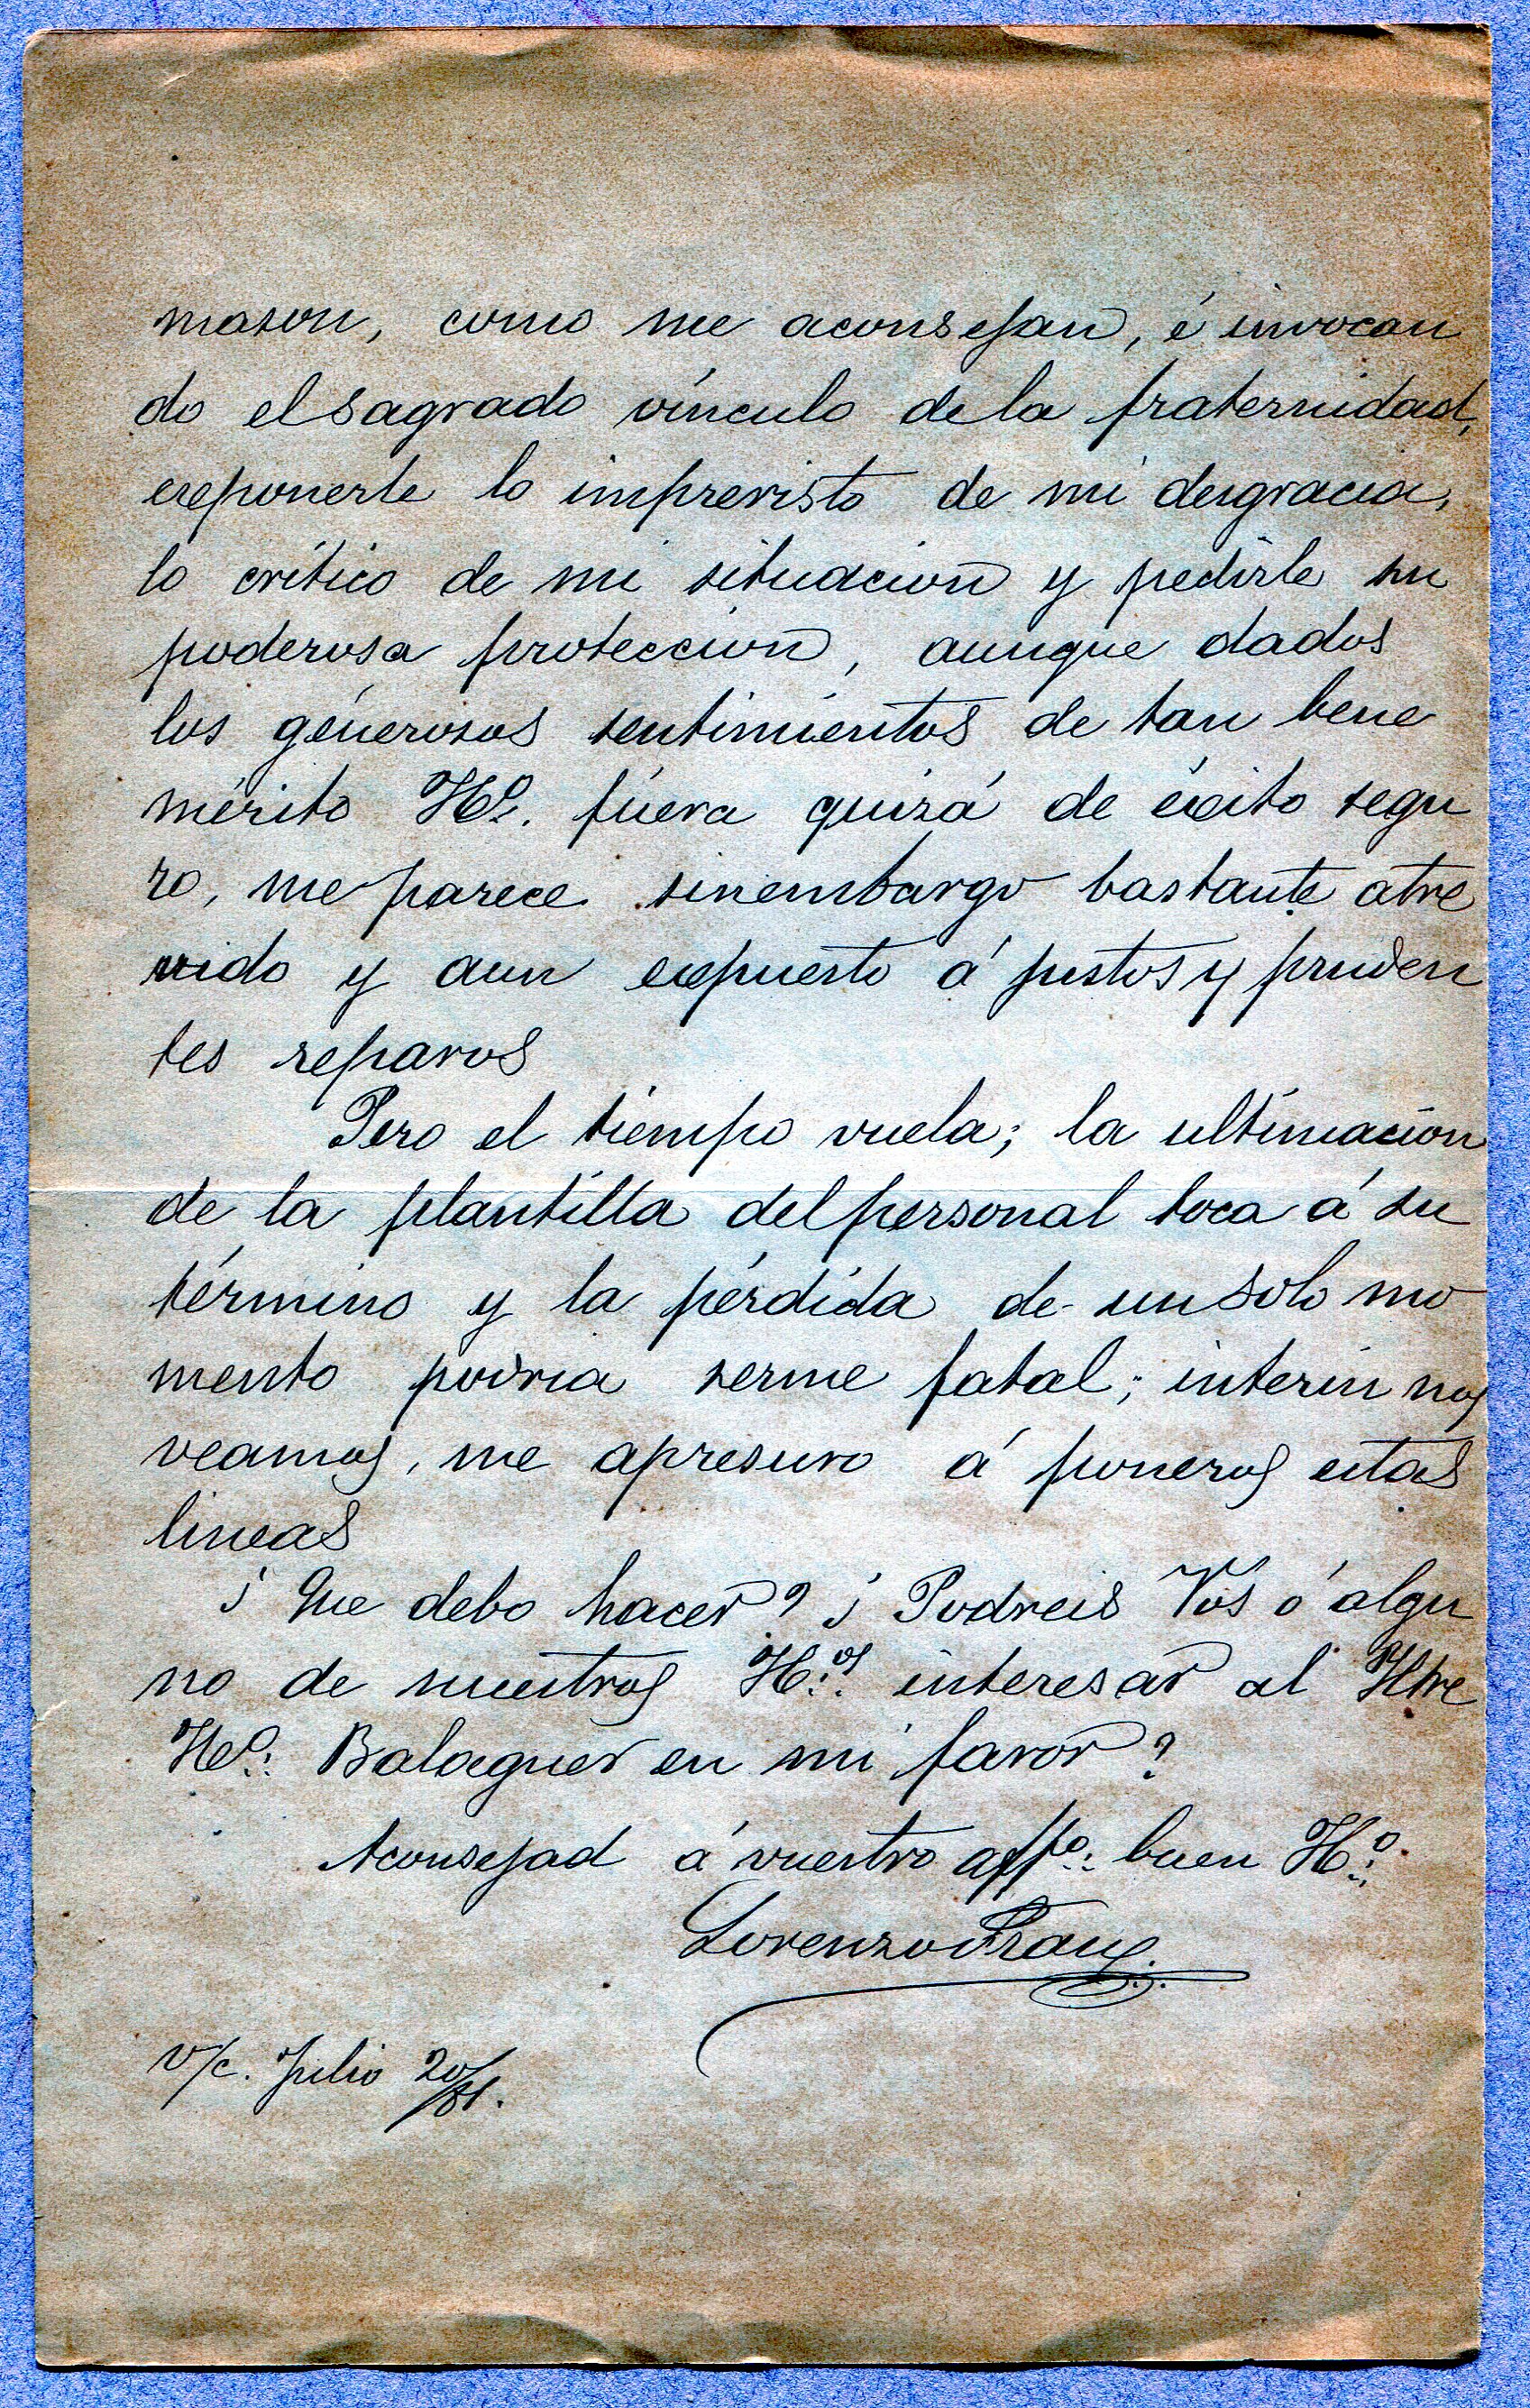 mason, como me aconsejan, é invocan
do el sagrado vínculo de la fraternidad,
exponerle lo imprevisto de mi desgracia,
lo crítico de mi situacion y pedirle su
poderosa proteccion, aunque dados
los generosos sentimientos de tan bene
mérito H.º fuera quizá de éxito segu
ro, me parece sinembargo bastante atre
vido y aun expuesto á justos y pruden
tes reparos
Pero el tiempo vuela; la ultimacion
de la plantilla del personal toca á su
término y la pérdida de un solo mo
mento podria serme fatal; interin nos
veamos, me apresuro á poneros estas
lineas
¿Que debo hacer? ¿Podreis Vos ó algu
no de nuestros H.ºˢ interesar al Iltre
H.º: Balaguer en mi favor?
Aconsejad á vuestro affº: buen H.º:
Lorenzo Frau
v/c. Julio 20/81.